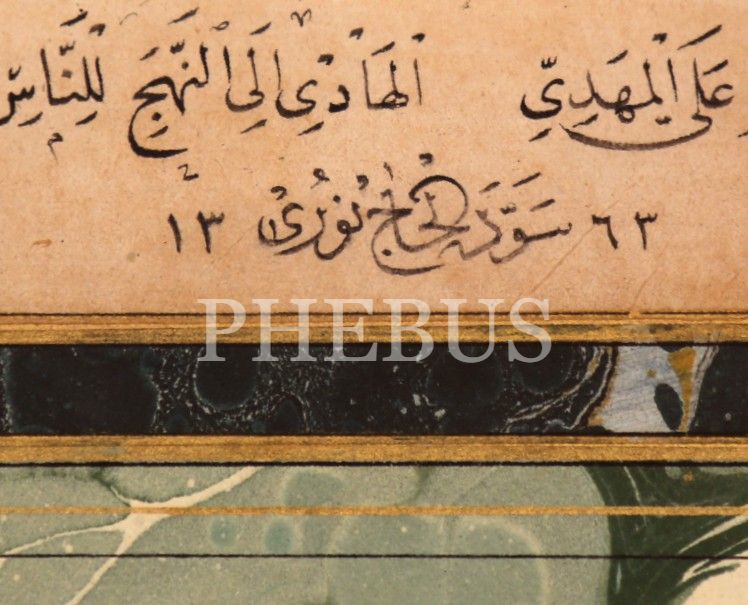 عَلَى الْمَهْدِيِّ الْهَادِي إِلَى النَّهْجِ لِلنَّاسِ
٦٣ سَوَّدَهُ الحاج نُورِي ١٣
PHEBUS